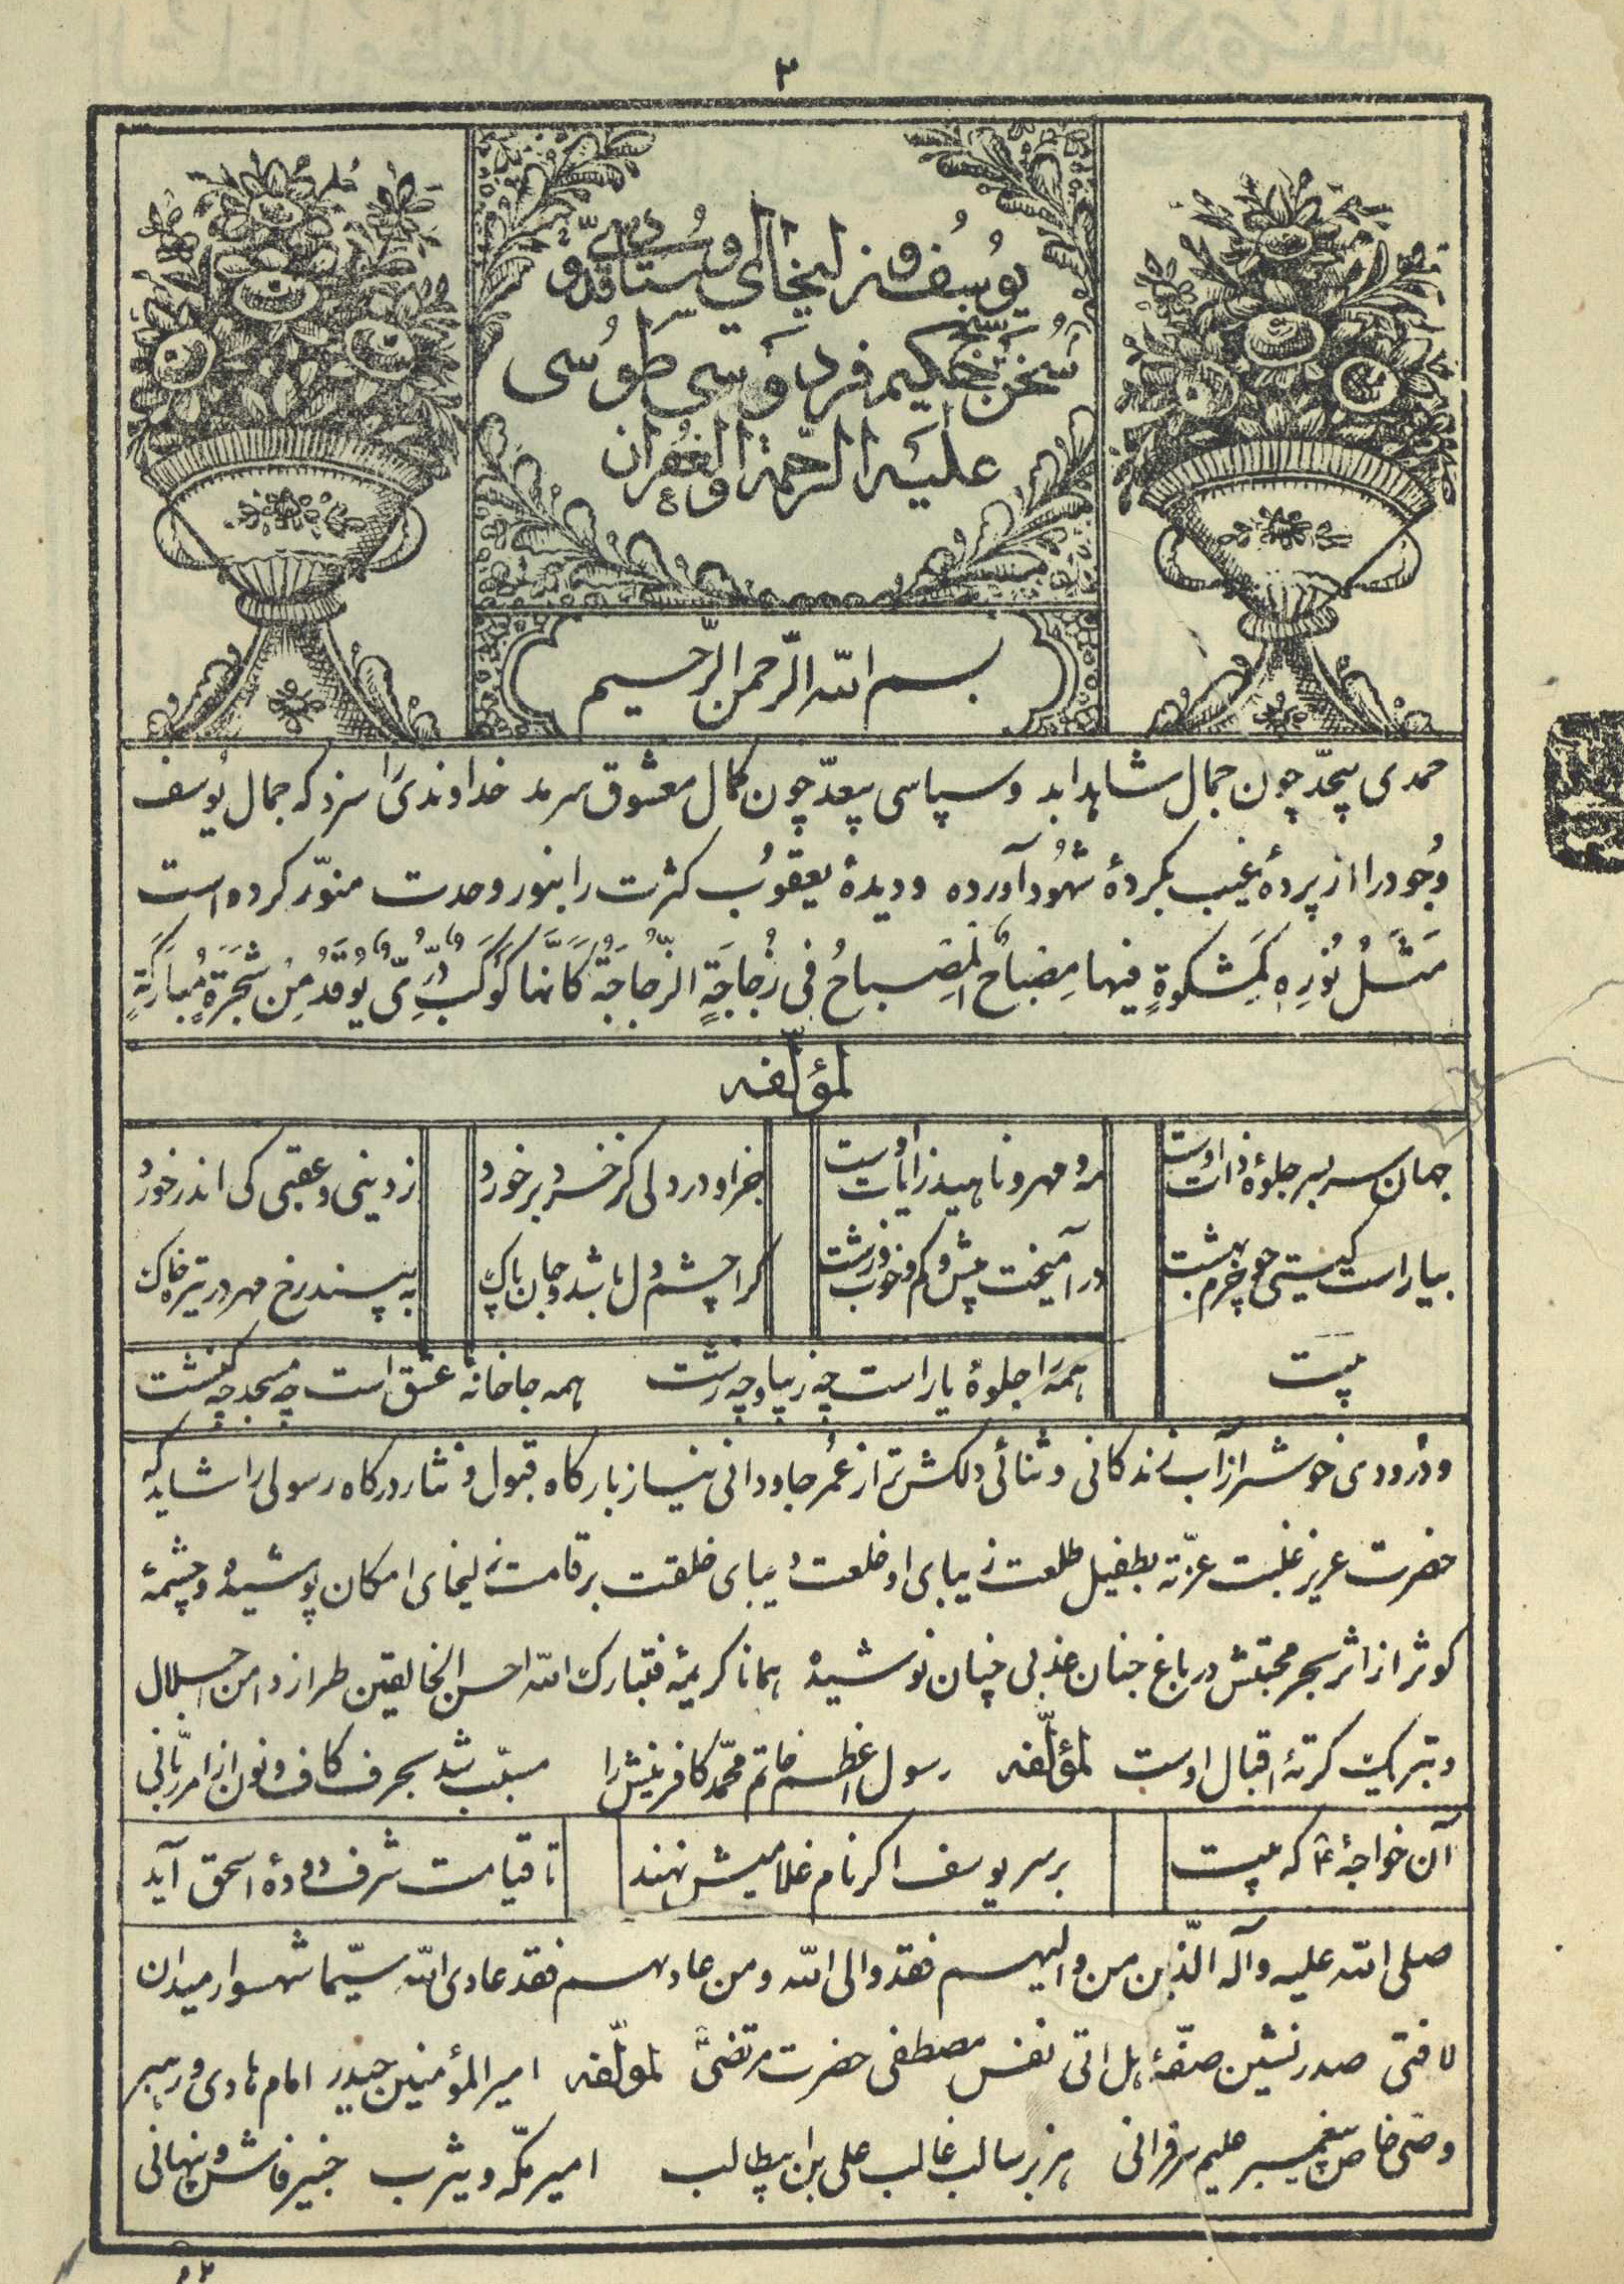 ۲
یوسف و زلیخای استاد و قدوهٔ
سخن سنج حکیم فردوسی طوسی
علیه الرحمة و الغفران
بسم الله الرّحمن الرّحیم
حمدی بیحدّ چون جمال شاهد ابد و سپاسی بیعدّ چون کمال معشوق سرمد خداوندی را سزد که جمال یوسف
وجود را از پردهٔ غیب بکردهٔ شهود آورده و دیدهٔ یعقوب کثرت را بنور وحدت منوّر کرده است
مَثَلُ نُورِهِ کَمِشکوةٍ فیها مِصْباحٌ اَلمِصباحُ فی زُجاجَةٍ الزّجاجَةُ کَاَنَّها کَوکَبٌ دُرِّیٌّ یُوقَدُ مِنْ شَجَرَةٍ مُبارَکَةٍ
لمؤلّفه
جهان سربسر جلوهٔ ذات اوست مه و مهر و ناهید زایات اوست جز او در دلی کز خرد برخورد ز دینی و عقبی کی اندر خورد
بیاراست گیتی چو خرم بهشت درآمیخت بیش و کم و خوب و زشت کرا چشم دل باشد و جان پاک به بیند رخ مهر در تیره خاک
بیت همه را جلوهٔ یار است چه زیبا و چه زشت همه جا خانهٔ عشق است چه مسجد چه کنشت
و درودی خوشتر از آب زندکانی و ثنائی دلکش تر از عمر جاودانی نیاز بارکاه قبول و نثار درکاه رسولی را شاید که
حضرت عزیز غلبت عزّته بطفیل طلعت زیبای او خلعت دیبای خلقت بر قامت زلیخای امکان پوشیده و چشمهٔ
کوثر از اثر بحر محبتش در باغ جنان عذبی چنان نوشیده همانا کریمهٔ فتبارک الله احسن الخالقین طراز دامن اجلال
و تبریک کرتهٔ اقبال اوست لمؤلّفه رسول اعظم خاتم محمّد کافرینش را مسبّب شد بحرف کاف و نون از امر ربّانی
آن خواجهٔ که بیت بر سر یوسف اکر نام غلامیش نهند تا قیامت شرف دودهٔ اسحق آید
صلی الله علیه و آله الّذین من والیهم فقد والی الله و من عادیهم فقد عادی الله سیّما شهسوار میدان
لافتی صدرنشین صفّهٔ هل اتی نفس مصطفی حضرت مرتضی لمؤلّفه امیرالمؤمنین حیدر امام هادی و رهبر
وصی خاص پیغمبر علیم سرّ قرانی هزبر سالب غالب علی بن ابیطالب امیر مکّه و یثرب خبیر فاش و پنهانی